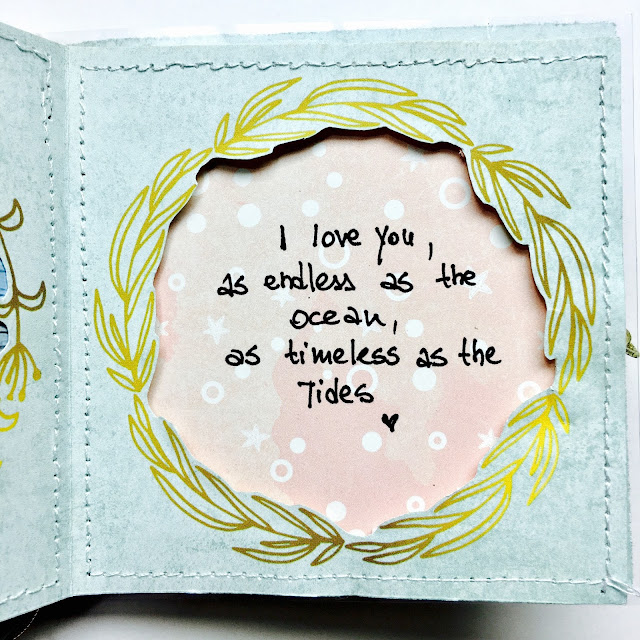 I love you,
as endless as the
ocean,
as timeless as the
Tides